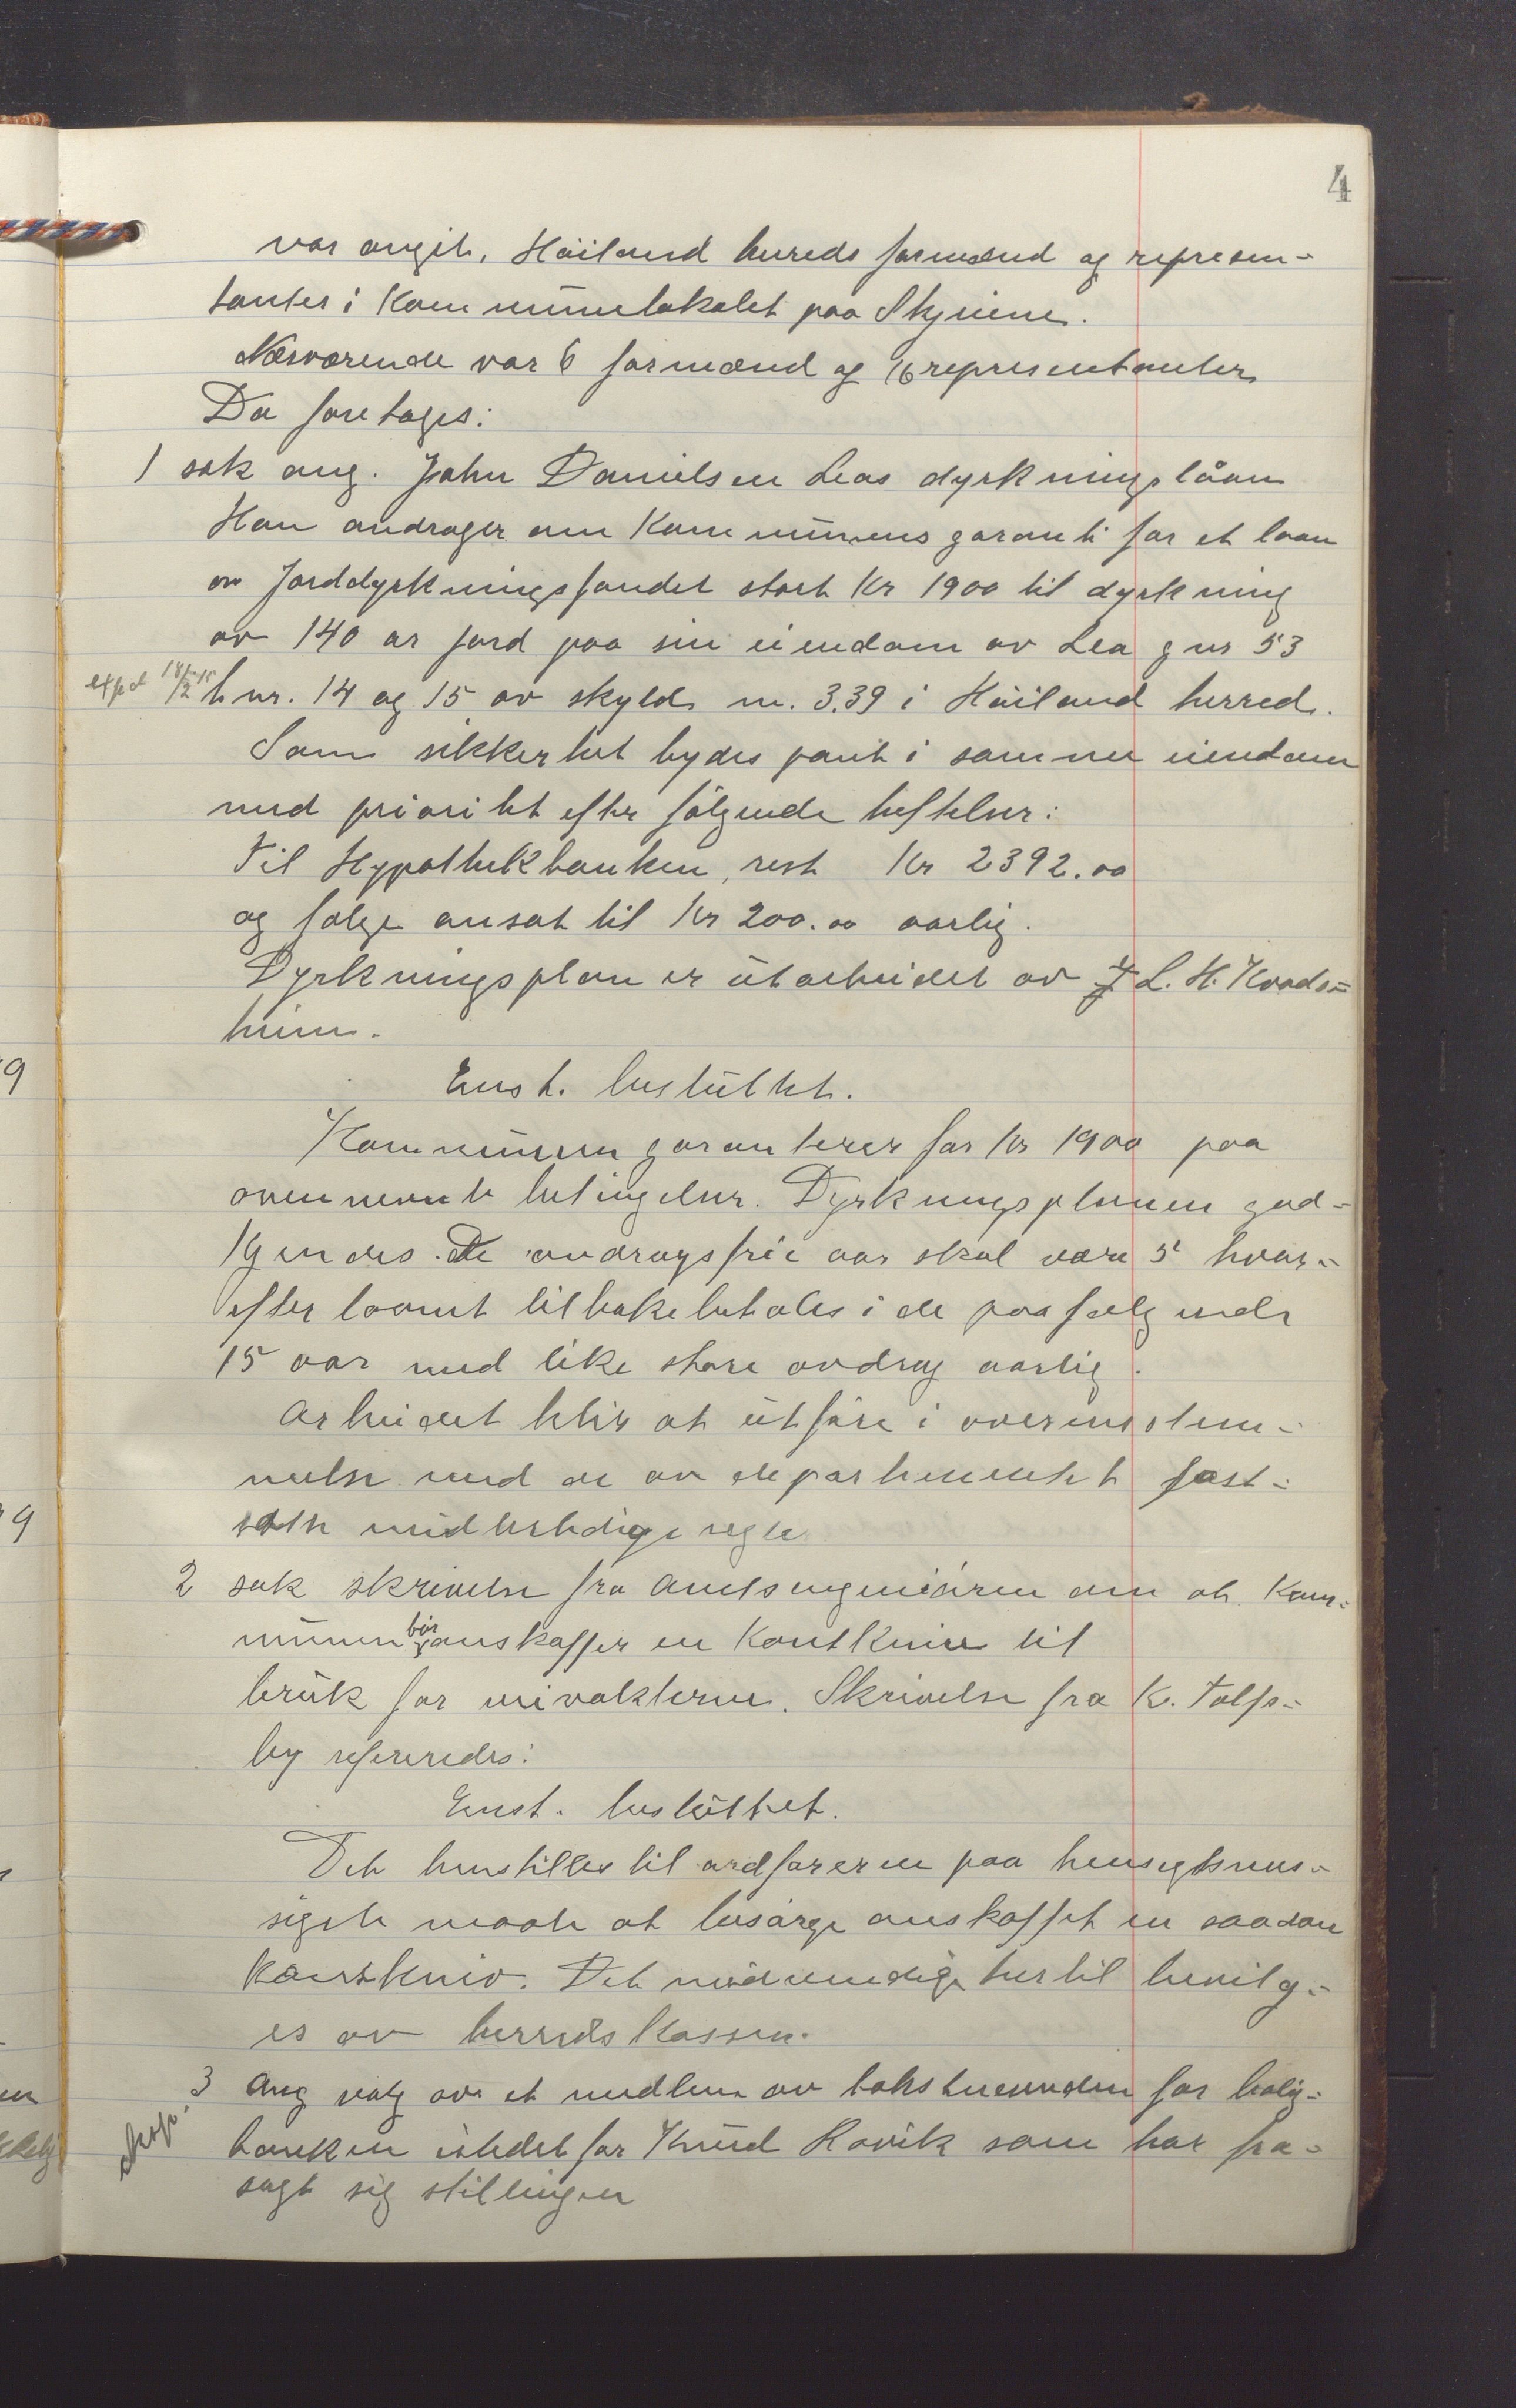 4
var angit, Höiland herreds formænd og represen-
tanter i Kommunelokalet paa Skjeiene.
Nærværende var 6 formænd og 16 representanter
Da foretages:
1 sak ang. John Danielsen Leas dyrkningslåan
Han andrager om Kommunens garanti for et laan
av Jorddyrkningsfondet stort Kr 1900 til dyrkning
av 140 ar jord paa sin eiendom av Lea gnr 53
exped 18/12 15 bnr. 14 og 15 av skyld m. 3.39 i Höiland herred.
Som sikkerhet bydes pant i samme eiendom
med prioritet efter følgende heftelser:
Til Hypothekbanken, rest Kr 2392.00
og følge ansat til Kr 200.00 aarlig.
Dyrkningsplan er utarbeidet av L. H. Kvads-
heim.
Enst. besluttet.
Kommunen garanterer for Kr 1900 paa
ovennevnte betingelser. Dyrkningsplanen god-
kjendes. De avdragsfrie aar skal være 5 hvor-
efter laanet tilbakebetales i de paafølgende
15 aar med like store avdrag aarlig.
Arbeidet blir at utføre i overensstem-
melse med de av departementet fast-
satte midlertidige regle
2 sak skrivelse fra Amtsingeniøren om at Kom-
munen bør anskaffer en Kantkniv til
bruk for veivokterne. Skrivelse fra K. Tolfs-
by refereredes:
Enst. besluttet.
Det henstilles til ordføreren paa hensigtsmes-
sigste maate at besørge anskaffet en saadan
Kantkniv. Det nødvendige hertil bevilg-
es av herredskassen.
3 Ang valg av et medlem av takstnevnden for bolig-
eksp.
banken istedet for Knud Hovik som har fra-
sagt sig stillingen